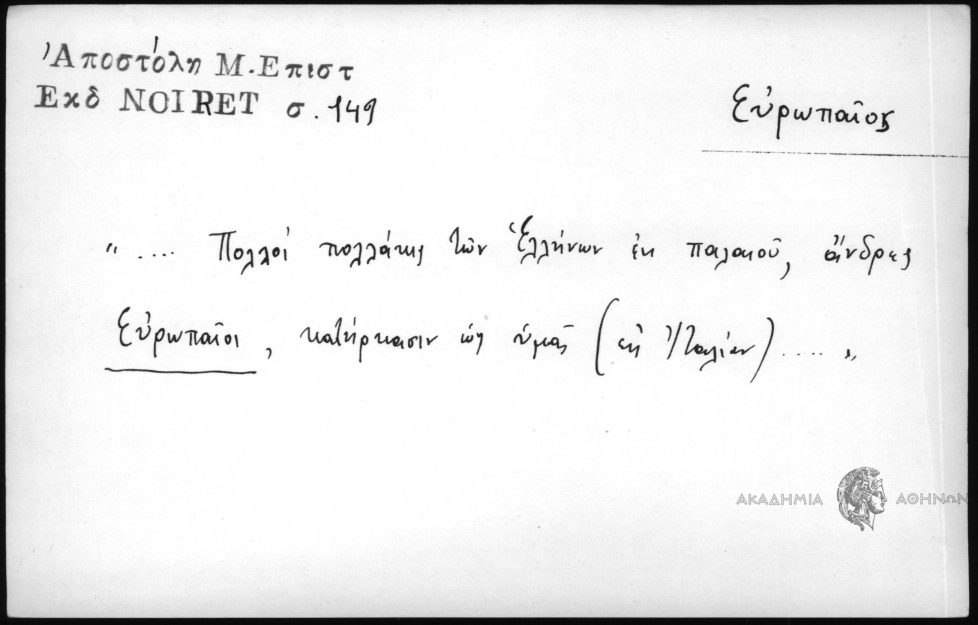 Ἀποστόλη Μ. Επιστ
Εκδ NOIRET σ. 149
Εὐρωπαῖος
" .... Πολλοί πολλάκις τῶν Ἑλλήνων ἐκ παλαιοῦ, ἄνδρες
Εὐρωπαῖοι, κατήρκασιν ὡς ὑμᾶς (εἰς Ἰταλίαν) .... "
ΑΚΑΔΗΜΙΑ ΑΘΗΝΩΝ